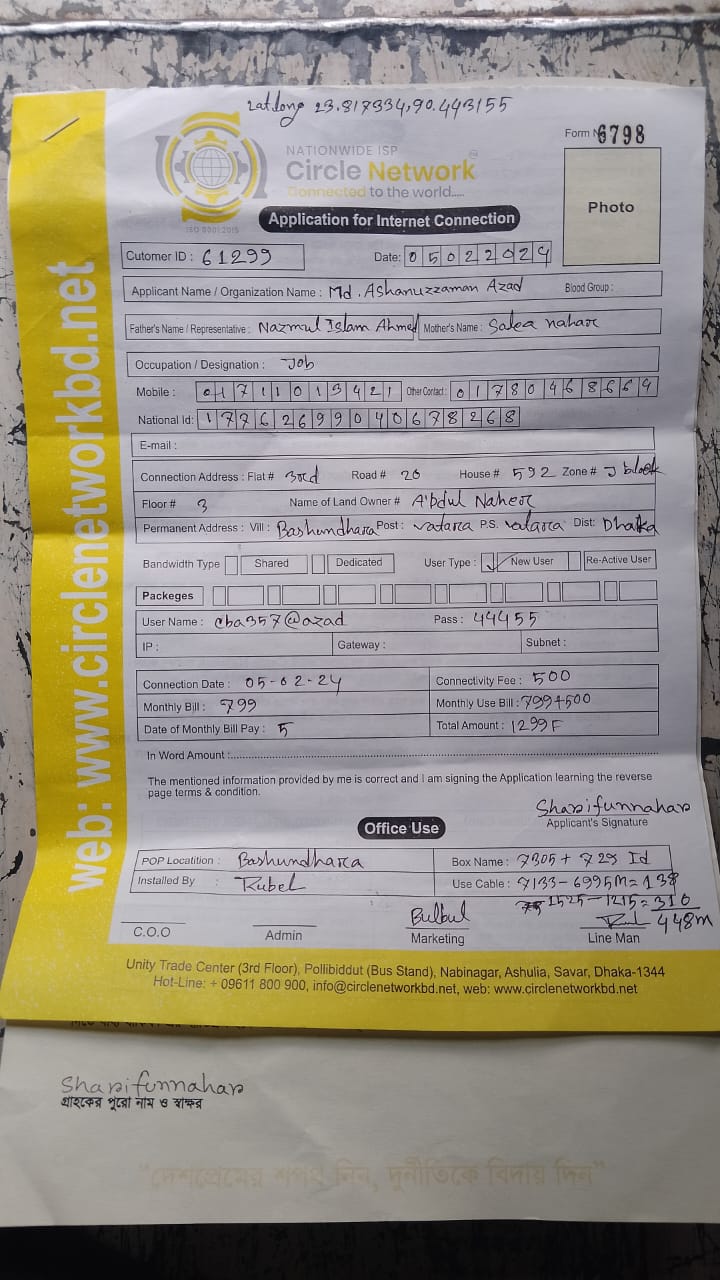 Lat long 23.817334,90.443155
Form N 6798
NATIONWIDE ISP
Circle Network
Connected to the world.....
ISO 9001:2015
Application for Internet Connection
Photo
Cutomer ID : 61299 Date: 05022024
Applicant Name / Organization Name : Md. Ashanuzzaman Azad Blood Group :
Father's Name / Representative : Nazmul Islam Ahmed Mother's Name : Salea nahar
Occupation / Designation : Job
Mobile : 01711013421 Other Contact : 01780468669
National Id: 17762699040678268
E-mail :
Connection Address : Flat # 3rd Road # 20 House # 592 Zone # J block
Floor # 3 Name of Land Owner # A'bdul Naher
Permanent Address : Vill : Bashundhara Post : vatara P.S. vatara Dist: Dhaka
Bandwidth Type Shared Dedicated User Type : New User Re-Active User
Packeges
User Name : cba357@azad Pass : 44455
IP : Gateway : Subnet :
Connection Date : 05-02-24 Connectivity Fee : 500
Monthly Bill : 799 Monthly Use Bill : 799+500
Date of Monthly Bill Pay : 5 Total Amount : 1299 F
In Word Amount :
The mentioned information provided by me is correct and I am signing the Application learning the reverse
page terms & condition.
Sharifunnahar
Applicant's Signature
Office Use
POP Locatition : Bashundhara Box Name : 7305 + 729 Id
Installed By : Rubel Use Cable : 7133-6995M=138
1525-1215=310
448m
Bulbul
C.O.O Admin Marketing Line Man
Unity Trade Center (3rd Floor), Pollibiddut (Bus Stand), Nabinagar, Ashulia, Savar, Dhaka-1344
Hot-Line: + 09611 800 900, info@circlenetworkbd.net, web: www.circlenetworkbd.net
web: www.circlenetworkbd.net
Sharifunnahar
গ্রাহকের পুরো নাম ও স্বাক্ষর
"দেশপ্রেমের শপথ নিন, দুর্নীতিকে বিদায় দিন"